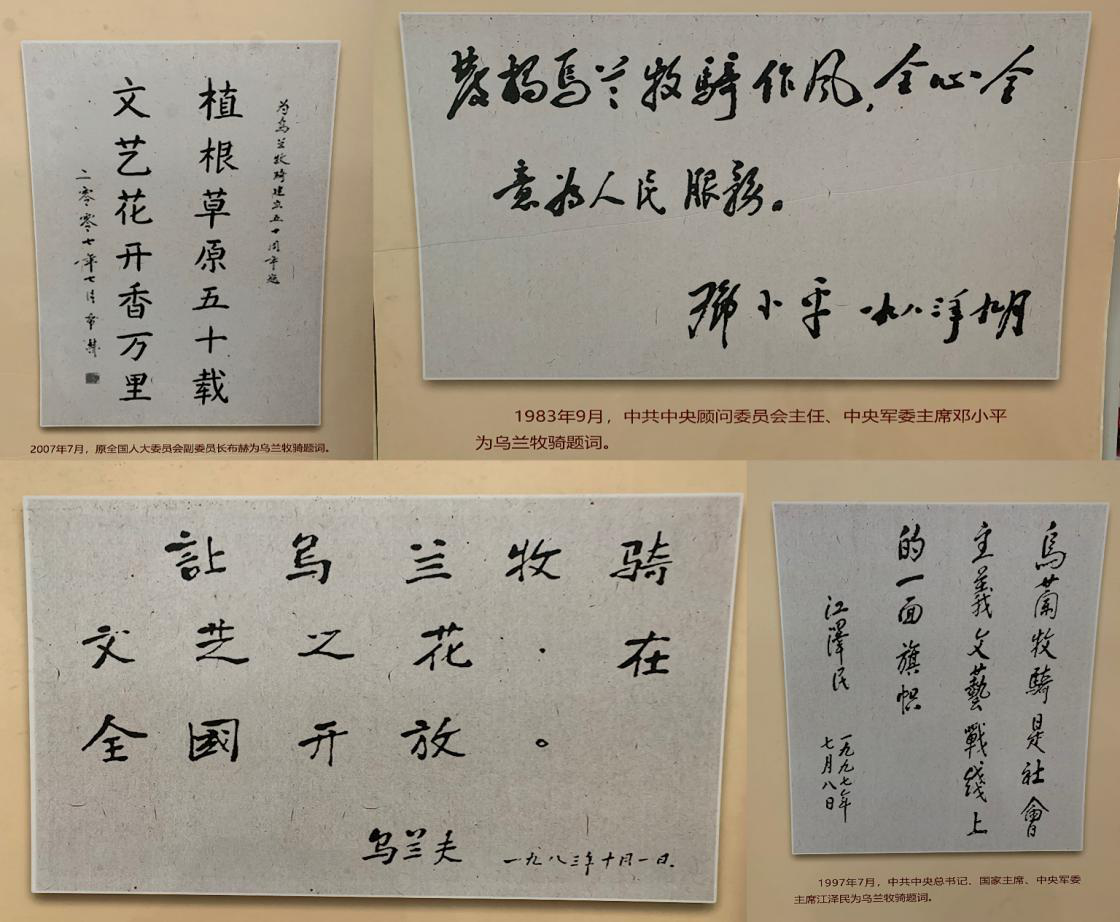 为乌兰牧骑建立五十周年题
植根草原五十载
文艺花开香万里
二零零七年七月布赫
2007年7月，原全国人大委员会副委员长布赫为乌兰牧骑题词。
发扬乌兰牧骑作风，全心全
意为人民服务。
邓小平 一九八三年九月
1983年9月，中共中央顾问委员会主任、中央军委主席邓小平
为乌兰牧骑题词。
让乌兰牧骑
文艺之花·在
全國开放。
乌兰夫 一九八三年十月一日.
烏蘭牧騎是社會
主義文藝戰綫上
的一面旗帜
江澤民 一九九七年
七月八日
1997年7月，中共中央总书记、国家主席、中央军委
主席江泽民为乌兰牧骑题词。